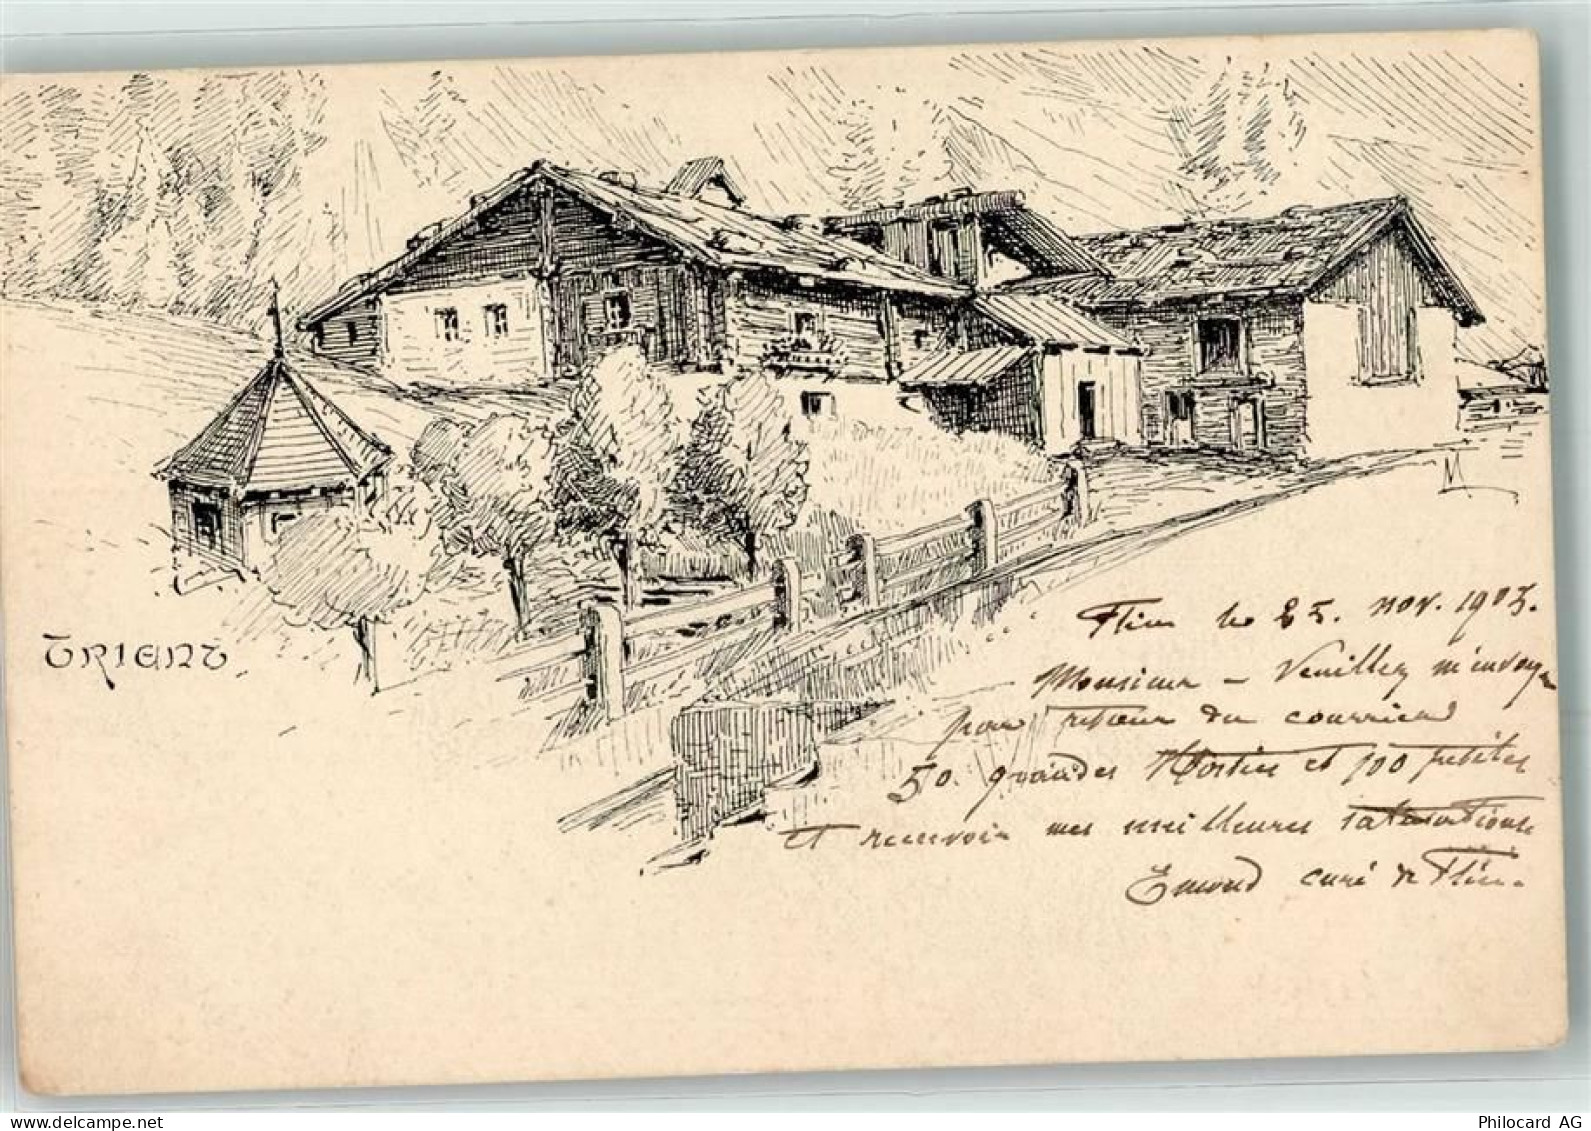 TRIENT
M
le 25. nov. 1903.
Monsieur – Veuillez m'envoyer
par retour du courrier
50. grandes Hosties et 100 petites
et recevoir mes meilleures salutations
curé de
Philocard AG
delcampe.net